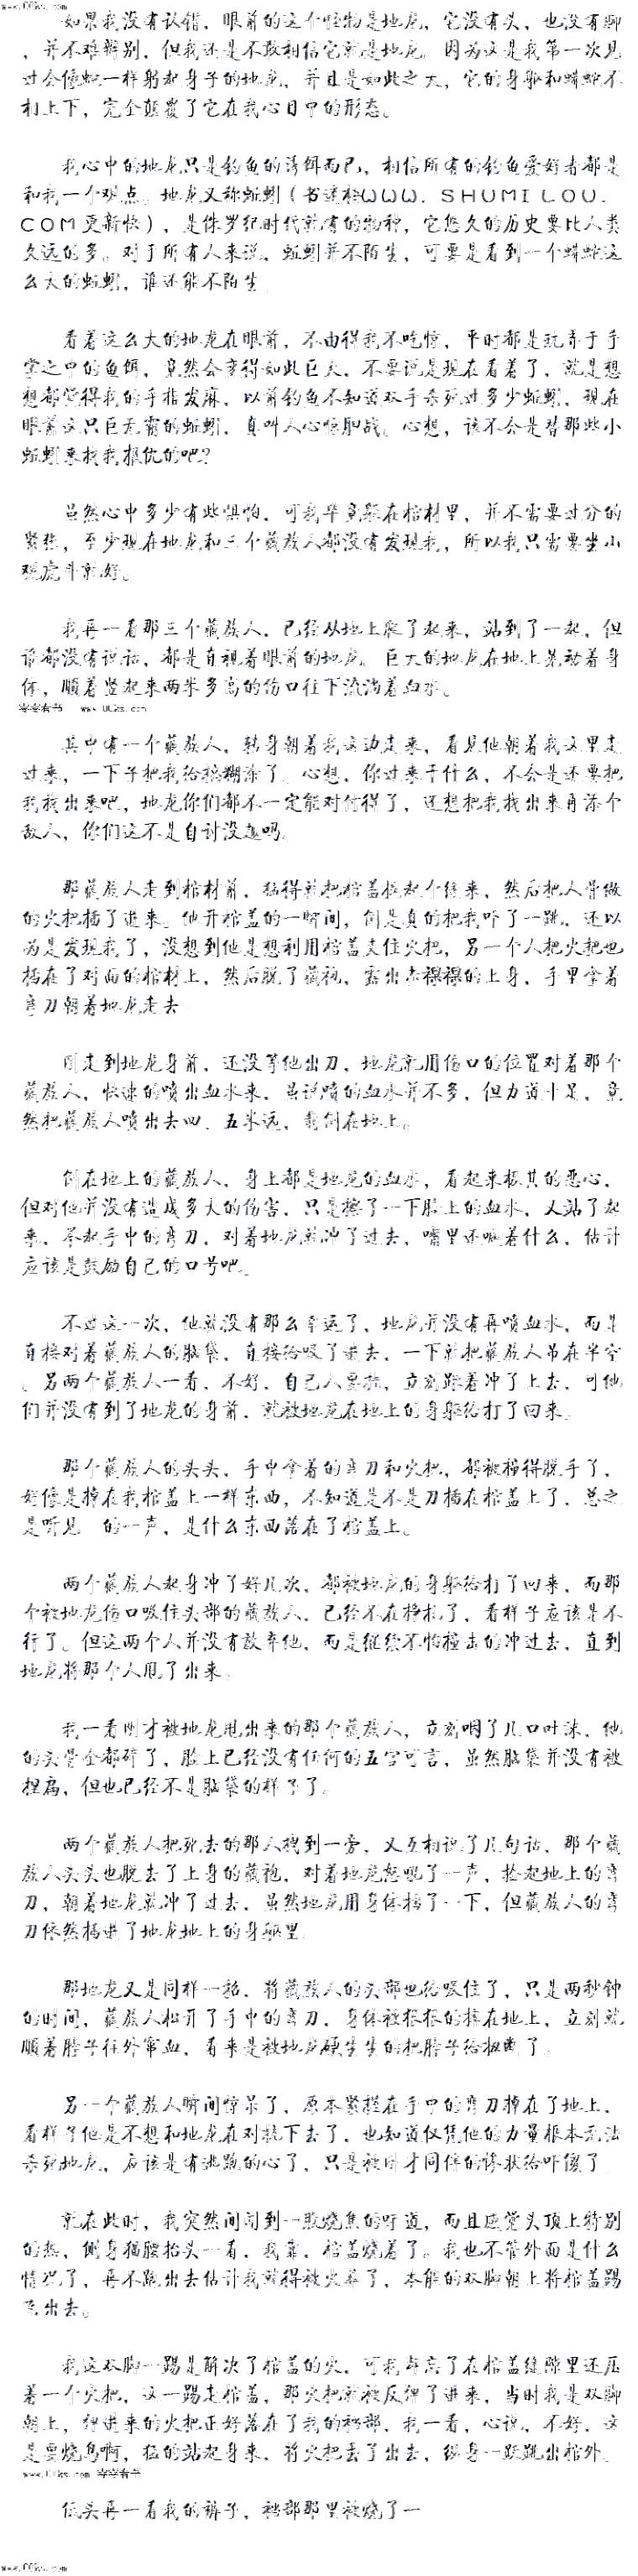 www.00ks.com
如果我没有认错，眼前的这个怪物是地龙，它没有头，也没有脚
，并不难辨别，但我还是不敢相信它就是地龙。因为这是我第一次见
过会像蛇一样躬起身子的地龙，并且是如此之大，它的身躯和蟒蛇不
相上下，完全颠覆了它在我心目中的形态。
我心中的地龙只是钓鱼的诱饵而已，相信所有的钓鱼爱好者都是
和我一个观点。地龙又称蚯蚓（书谜楼WWW．SHUMILOU．
COM更新快），是侏罗纪时代就有的物种，它悠久的历史要比人类
久远的多。对于所有人来说，蚯蚓并不陌生，可要是看到一个蟒蛇这
么大的蚯蚓，谁还能不陌生
看着这么大的地龙在眼前，不由得我不吃惊，平时都是玩弄于手
掌之中的鱼饵，竟然会变得如此巨大，不要说是现在看着了，就是想
想都觉得我的手指发麻，以前钓鱼不知道双手杀死过多少蚯蚓，现在
眼前这只巨无霸的蚯蚓，真叫人心惊胆战。心想，该不会是替那些小
蚯蚓来找我报仇的吧？
虽然心中多少有些惧怕，可我毕竟躲在棺材里，并不需要过分的
紧张，至少现在地龙和三个藏族人都没有发现我，所以我只需要坐山
观虎斗就好。
我再一看那三个藏族人，已经从地上爬了起来，站到了一起，但
谁都没有说话，都是直视着眼前的地龙。巨大的地龙在地上晃动着身
体，顺着竖起来两米多高的伤口往下流淌着血水。
零零看书 www.00ks.com
其中有一个藏族人，转身朝着我这边走来，看见他朝着我这里走
过来，一下子把我给搞糊涂了。心想，你过来干什么，不会是还要把
我找出来吧，地龙你们都不一定能对付得了，还想把我找出来再添个
敌人，你们这不是自讨没趣吗。
那藏族人走到棺材前，猛得就把棺盖掀起个缝来，然后把人骨做
的火把插了进来。他开棺盖的一瞬间，倒是真的把我吓了一跳，还以
为是发现我了，没想到他是想利用棺盖夹住火把，另一个人把火把也
插在了对面的棺材上，然后脱了藏袍，露出赤裸裸的上身，手里拿着
弯刀朝着地龙走去
刚走到地龙身前，还没等他出刀，地龙就用伤口的位置对着那个
藏族人，快速的喷出血水来，虽说喷的血水并不多，但力道十足，竟
然把藏族人喷出去四、五米远，翻倒在地上。
倒在地上的藏族人，身上都是地龙的血水，看起来极其的恶心，
但对他并没有造成多大的伤害，只是擦了一下脸上的血水，又站了起
来，举起手中的弯刀，对着地龙就冲了过去，嘴里还喊着什么，估计
应该是鼓励自己的口号吧。
不过这一次，他就没有那么幸运了，地龙并没有再喷血水，而是
直接对着藏族人的脑袋，直接给吸了进去，一下就把藏族人吊在半空
。另两个藏族人一看，不好，自己人要挂，立刻跟着冲了上去，可他
们并没有到了地龙的身前，就被地龙在地上的身躯给打了回来。
那个藏族人的头头，手中拿着的弯刀和火把，都被撞得脱手了，
好像是掉在我棺盖上一样东西，不知道是不是刀插在棺盖上了，总之
是听见 的一声，是什么东西落在了棺盖上。
两个藏族人起身冲了好几次，都被地龙的身躯给打了回来，而那
个被地龙伤口吸住头部的藏族人，已经不在挣扎了，看样子应该是不
行了。但这两个人并没有放弃他，而是继续不怕撞击的冲过去，直到
地龙将那个人甩了出来。
我一看刚才被地龙甩出来的那个藏族人，立刻咽了几口吐沫，他
的头骨全都碎了，脸上已经没有任何的五官可言，虽然脑袋并没有被
捏扁，但也已经不是脑袋的样子了。
两个藏族人把死去的那人拽到一旁，又互相说了几句话，那个藏
族人头头也脱去了上身的藏袍，对着地龙怒吼了一声，捡起地上的弯
刀，朝着地龙就冲了过去，虽然地龙用身体挡了一下，但藏族人的弯
刀依然插进了地龙地上的身躯里
那地龙又是同样一招，将藏族人的头部也给吸住了，只是两秒钟
的时间，藏族人松开了手中的弯刀，身体被狠狠的摔在地上，立刻就
顺着脖子往外窜血，看来是被地龙硬生生的把脖子给扭断了。
另一个藏族人瞬间惊呆了，原本紧握在手中的弯刀掉在了地上，
看样子他是不想和地龙在对抗下去了，也知道仅凭他的力量根本无法
杀死地龙，应该是有逃跑的心了，只是被刚才同伴的惨状给吓傻了
就在此时，我突然间闻到一股烧焦的味道，而且感觉头顶上特别
的热，侧身猫腰抬头一看，我靠，棺盖烧着了。我也不管外面是什么
情况了，再不跑出去估计我就得被火葬了，本能的双脚朝上将棺盖踢
飞出去。
我这双脚一踢是解决了棺盖的火，可我却忘了在棺盖缝隙里还压
着一个火把，这一踢走棺盖，那火把就被反弹了进来，当时我是双脚
朝上，弹进来的火把正好落在了我的裆部，我一看，心说，不好，这
是要烧鸟啊，猛的站起身来，将火把丢了出去，纵身一跃跳出棺外。
www.00ks.com 零零看书
低头再一看我的裤子，裆部那里被烧了一
www.00ks.com